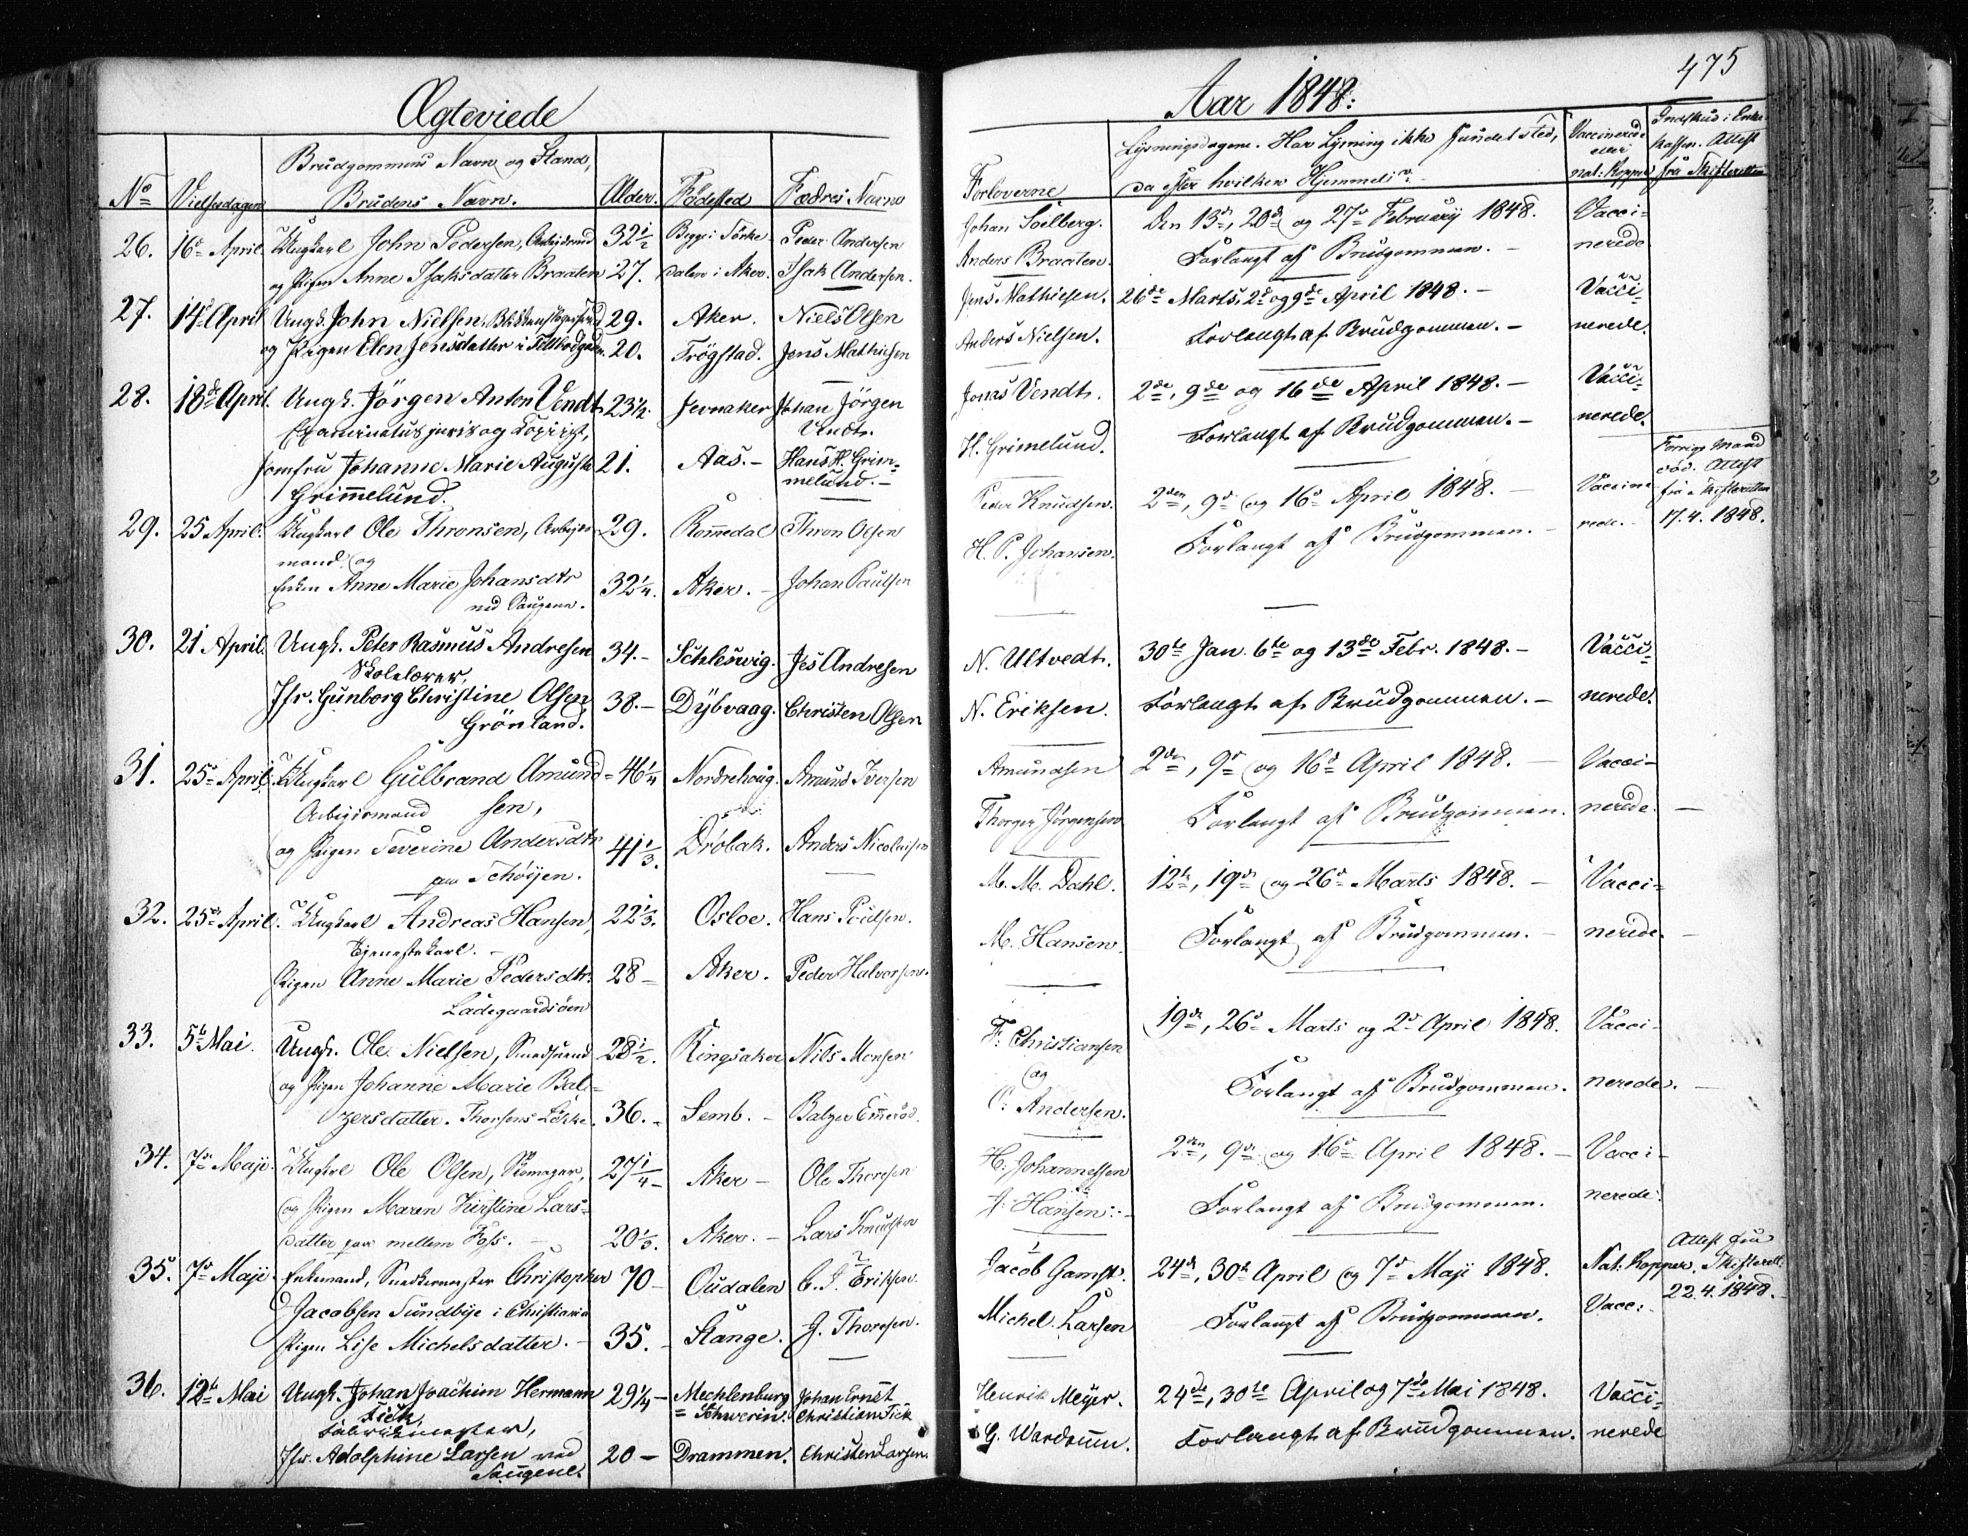 475
Ægteviede
Aar 1848.
No Vielsesdagen Brudgommens Navn og Stand, Brudens Navn. Alder. Fødested Fædres Navne
Forloverne Lysningsdagene. Har Lysning ikke fundet sted, da efter hvilken Hjemmel Vaccinerede eller nat: Kopper Indskud i Enke Kassen. Attest fra Skifteretten
26. 16de April Ungkarl John Pedersen, Arbeidsmd 32½ Peder Andersen
og Pigen Anne Isaksdatter Braaten 27. dalen i Aker. Isak Andersen.
Johan Soelberg. Den 13de, 20de og 27de February 1848. Vacci-
Anders Braaten. Forlangt af Brudgommen. – nerede
27. 14de April Ungk. John Nielsen, 29. Aker. Niels Olsen
og Pigen Elen Jensdatter i 20. Trögstad. Jens Mathiesen
Jens Mathiesen. 26de Marts, 2de og 9de April 1848. – Vacci-
Anders Nielsen. Forlangt af Brudgommen. – nerede.
28. 18de April. Ungk. Jörgen Anton Vendt 23½. Jevnaker Johan Jörgen
Examinatus juris og Kopiist, Vendt.
Jomfru Johanne Marie Augusta 21. Aas. – Hans H. Grim-
Grimelund. melund. –
Jonas Vendt. 2de, 9de og 16de April 1848. – Vacci-
H. Grimelund. Forlangt af Brudgommen. – nerede.
29. 25 April. Ungkarl Ole Thronsen, Arbeids- 29. Romedal Thron Olsen
mand, og
Enken Anne Marie Johansdtr 32¼. Aker. – Johan Paulsen
ved Saugene.
Peder Knudsen. 2den, 9de og 16de April 1848. – Vaccine-
H. P. Johansen. Forlangt af Brudgommen. – rede. –
Forrige Mand
død. Attest
fra Skifteretten
17.4.1848.
30. 21 April. Ungk. Peter Rasmus Andresen 34. – Schleswig. Jes Andresen
Skolelærer,
Jfr. Gunborg Christine Olsen 38. – Dÿbvaag. Christen Olsen
Grönland.
N. Ultvedt. 30te Jan. 6te og 13de Febr. 1848. – Vacci-
N. Eriksen. Forlangt af Brudgommen. – nerede.
31. 25de April. Ungkarl Gulbrand Amund- 46¼ Nordrehoug. Amund Iversen
Arbeidsmand sen,
og Pigen Severine Andersdtr 41⅓. Dröbak. Anders Nicolaisen
paa Schöijen.
Amundsen 2den, 9de og 16de April 1848. – Vacci-
Thorger Jörgensen Forlangt af Brudgommen. nerede. –
32. 25de April. Ungkarl Andreas Hansen, 22⅓. Osloe. Hans Poulsen.
Tjenestekarl. –
Pigen Anne Marie Pedersdtr. 28 – Aker. Peder Halvorsen.
Ladegaardsöen
M. M. Dahl. 12te, 19de og 26de Marts 1848. – Vacci-
M. Hansen. Forlangt af Brudgommen. – nerede. –
33. 5te Mai. Ungk. Ole Nielsen, Smedsvend 28½. Ringsaker Nils Monsen
og Pigen Johanne Marie Bal-
zersdatter. Thorsens Løkke. 36. – Semb. – Balzer
F. Christiansen 19de, 26de Marts og 2de April 1848. Vacci-
og
C. Andersen. Forlangt af Brudgommen. nerede. –
34. 7de Maji. Ungkarl Ole Olsen, Skomager, 27¼ – Aker – Ole Thoresen
og Pigen Maren Kirstine Lars-
datter paa mellem Foss. – 20⅓. Aker. – Lars Knudsen
H. Johannessen 2den, 9de og 16de April 1848. – Vacci-
Hansen. – Forlangt af Brudgommen. nerede.
35. 7de Maji Enkemand, Snedkermester Christopher 70 – Oudalen Eriksen.
Jacobsen Sundbÿe i Christiania
Pigen Lise Michelsdatter. – 35. – Stange. G. Thoresen.
Jacob Gamst. 24de, 30te April og 7de Maji 1848. Nat. Kopper.
Michel Larsen Forlangt af Brudgommen. Vacc:
Attest fra
Skifterett.
22.4.1848. –
36. 12te Mai Ungk. Johan Joachim Hermann 29¼ – Mecklenburg Johan Ernst
Fick, = Schwerin. Christian Fick
Fabrikmester,
Jfr. Adolphine Larsen ved 20 – Drammen. Christen Larsen.
Saugene.
Henrik Meÿer. 24de, 30te April og 7de Mai 1848. Vacci-
G. Wardrum. Forlangt af Brudgommen. – nerede